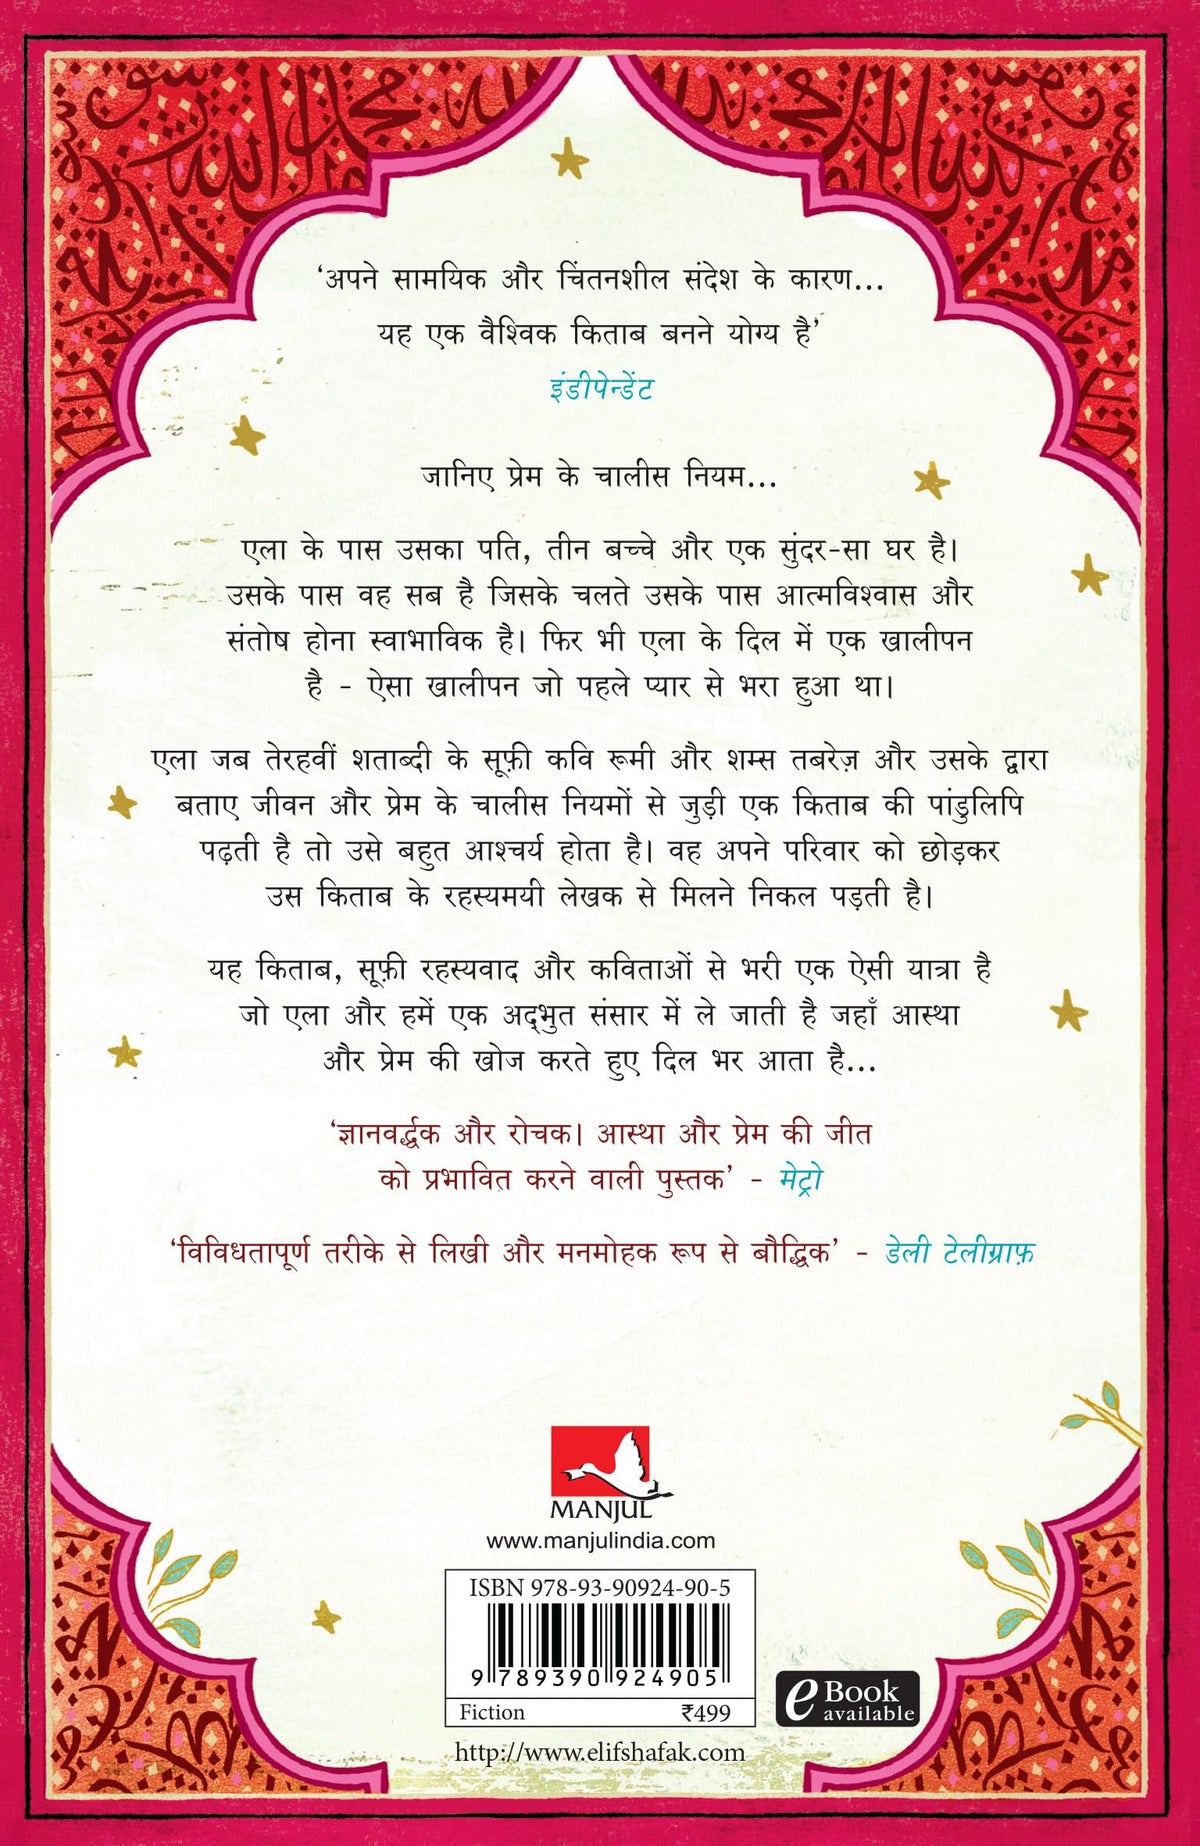 ‘अपने सामयिक और चिंतनशील संदेश के कारण...
यह एक वैश्विक किताब बनने योग्य है’
इंडीपेन्डेंट
जानिए प्रेम के चालीस नियम...
एला के पास उसका पति, तीन बच्चे और एक सुंदर-सा घर है।
उसके पास वह सब है जिसके चलते उसके पास आत्मविश्वास और
संतोष होना स्वाभाविक है। फिर भी एला के दिल में एक खालीपन
है - ऐसा खालीपन जो पहले प्यार से भरा हुआ था।
एला जब तेरहवीं शताब्दी के सूफ़ी कवि रूमी और शम्स तबरेज़ और उसके द्वारा
बताए जीवन और प्रेम के चालीस नियमों से जुड़ी एक किताब की पांडुलिपि
पढ़ती है तो उसे बहुत आश्चर्य होता है। वह अपने परिवार को छोड़कर
उस किताब के रहस्यमयी लेखक से मिलने निकल पड़ती है।
यह किताब, सूफ़ी रहस्यवाद और कविताओं से भरी एक ऐसी यात्रा है
जो एला और हमें एक अद्‌भुत संसार में ले जाती है जहाँ आस्था
और प्रेम की खोज करते हुए दिल भर आता है...
‘ज्ञानवर्द्धक और रोचक। आस्था और प्रेम की जीत
को प्रभावित करने वाली पुस्तक’ - मेट्रो
‘विविधतापूर्ण तरीके से लिखी और मनमोहक रूप से बौद्धिक’ - डेली टेलीग्राफ़
MANJUL
www.manjulindia.com
ISBN 978-93-90924-90-5
9 789390 924905
Fiction ₹499
eBook available
http://www.elifshafak.com